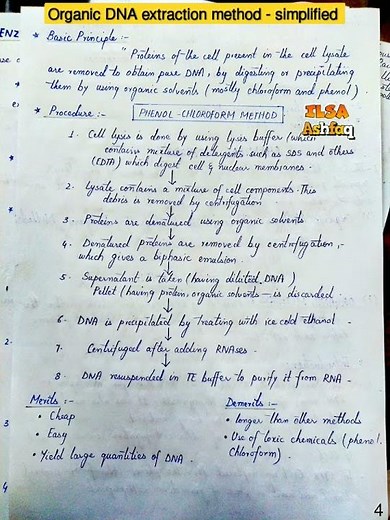 Organic DNA extraction method - simplified
* Basic Principle :-
"Proteins of the cell present in the cell lysate
are removed to obtain pure DNA, by digesting or precipitating
them by using organic solvents (mostly chloroform and phenol)
* Procedure :- PHENOL-CHLOROFORM METHOD
ILSA
Ashfaq
1. Cell lyses is done by using lysis buffer (which
contains mixture of detergents such as SDS and others
(EDTA) which digest cell & nuclear membranes.
2. Lysate contains a mixture of cell components. This
debris is removed by centrifugation
3. Proteins are denatured using organic solvents
4. Denatured proteins are removed by centrifugation,
which gives a biphasic emulsion.
5. Supernatant is taken (having diluted DNA)
Pellet (having protein, organic solvents - is discarded
6. DNA is precipitated by treating with ice cold ethanol.
7. Centrifuged after adding RNAses.
8. DNA resuspended in TE buffer to purify it from RNA.
Merits :-
• Cheap
• Easy
• Yield large quantities of DNA.
Demerits :-
• longer than other methods
• Use of toxic chemicals (phenol,
chloroform).
4